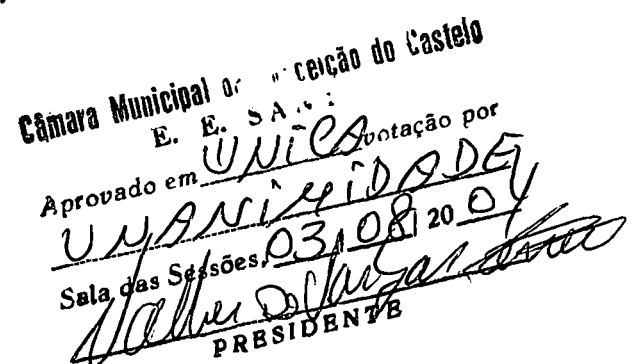 Câmara Municipal ceição do Castelo
E. E. SA
Aprovado em UNICA votação por
UNANIMIDADE
Sala das Sessões, 03, 08 20 04
PRESIDENTE